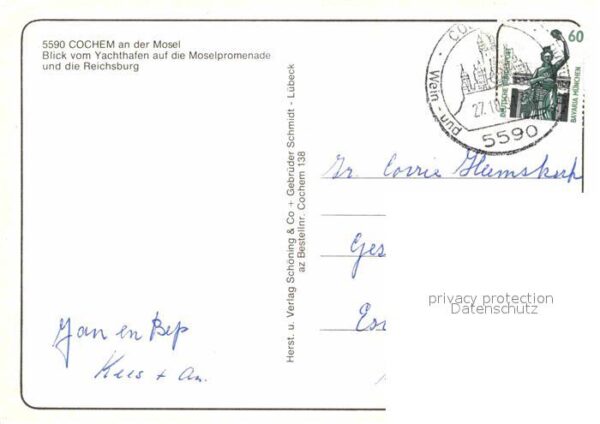 5590 COCHEM an der Mosel
Blick vom Yachthafen auf die Moselpromenade
und die Reichsburg
60
DEUTSCHE BUNDESPOST
BAVARIA MÜNCHEN
CO
Wein - und
27.10
5590
Herst. u. Verlag Schöning & Co + Gebrüder Schmidt - Lübeck
az Bestellnr. Cochem 138
Corrie Heemskerk
Ges
privacy protection
Datenschutz
Jan en Bep
Kees + An.